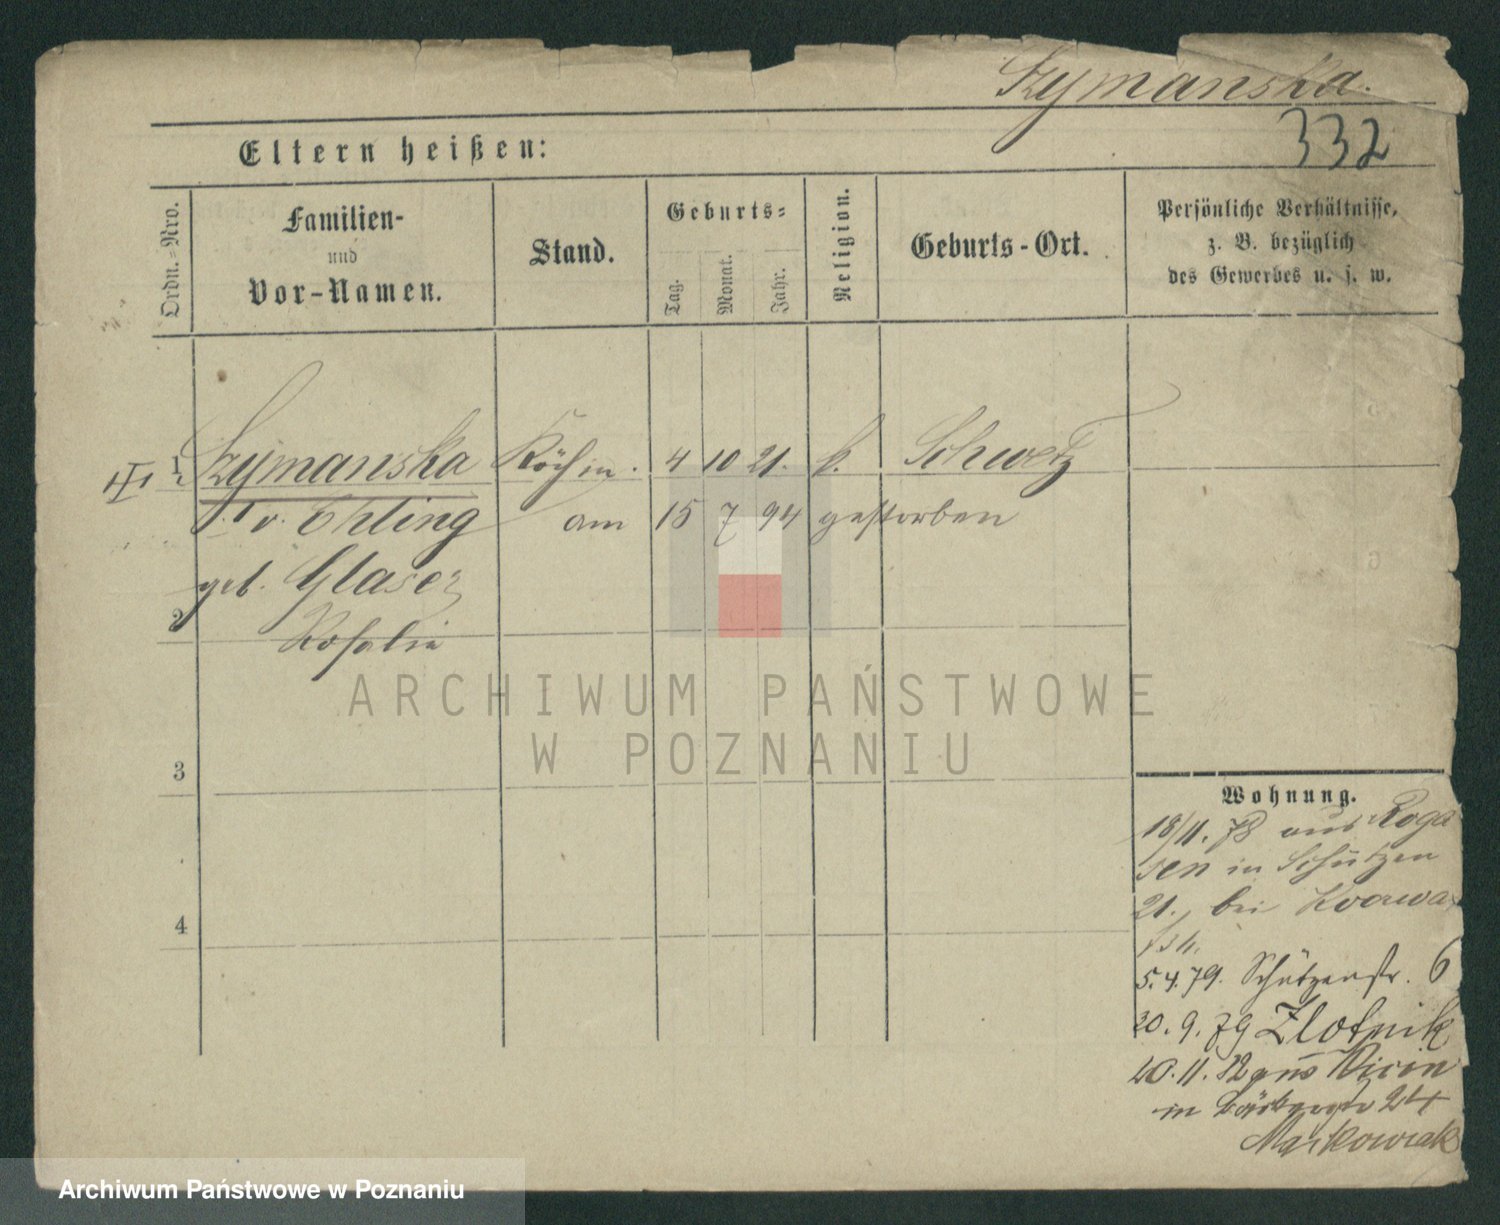 Szymanska.
332
Eltern heißen:
Ordn.-Nro.
Familien-
und
Vor-Namen.
Stand.
Geburts-
Tag.
Monat.
Jahr.
Religion.
Geburts-Ort.
Persönliche Verhältnisse,
z. B. bezüglich
des Gewerbes u. s. w.
1 Szymanska Köchin. 4 10 21. k. Schwetz
I v. Ehling am 15 7 94 gestorben
geb. Glaser
2
Rosalie
3
4
Wohnung.
18/11. 78 aus Roga
sen in Schützen
21., bei
5.4.79. Schützenstr. 6
20. 9. 79 Zlotnik
20. 11. 82 aus
in 24
Markowiak
ARCHIWUM PAŃSTWOWE
W POZNANIU
Archiwum Państwowe w Poznaniu